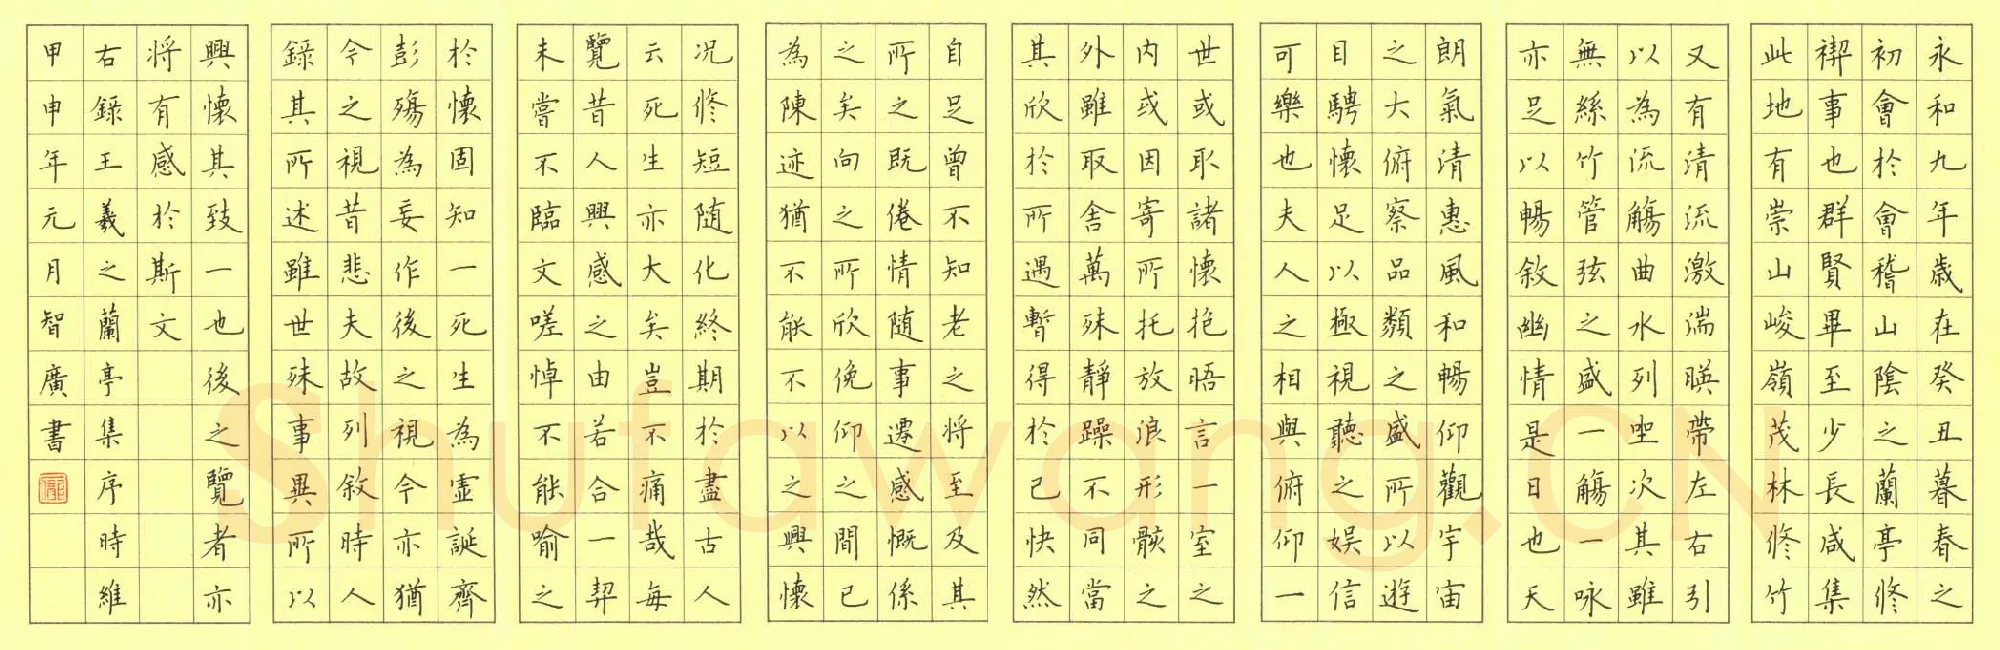 永和九年歲在癸丑暮春之
初會於會稽山陰之蘭亭修
禊事也群賢畢至少長咸集
此地有崇山峻嶺茂林修竹
又有清流激湍暎帶左右引
以為流觴曲水列坐次其雖
無絲竹管弦之盛一觴一咏
亦足以暢敘幽情是日也天
朗氣清惠風和暢仰觀宇宙
之大俯察品類之盛所以遊
目騁懷足以極視聽之娛信
可樂也夫人之相與俯仰一
世或取諸懷抱晤言一室之
內或因寄所托放浪形骸之
外雖取舍萬殊靜躁不同當
其欣於所遇暫得於己快然
自足曾不知老之將至及其
所之既倦情隨事遷感慨係
之矣向之所欣俛仰之間已
為陳迹猶不能不以之興懷
況修短隨化終期於盡古人
云死生亦大矣豈不痛哉每
覽昔人興感之由若合一契
未嘗不臨文嗟悼不能喻之
於懷固知一死生為虛誕齊
彭殤為妄作後之視今亦猶
今之視昔悲夫故列敘時人
錄其所述雖世殊事異所以
興懷其致一也後之覽者亦
將有感於斯文
右錄王羲之蘭亭集序時維
甲申年元月智廣書
Shufawang.CN